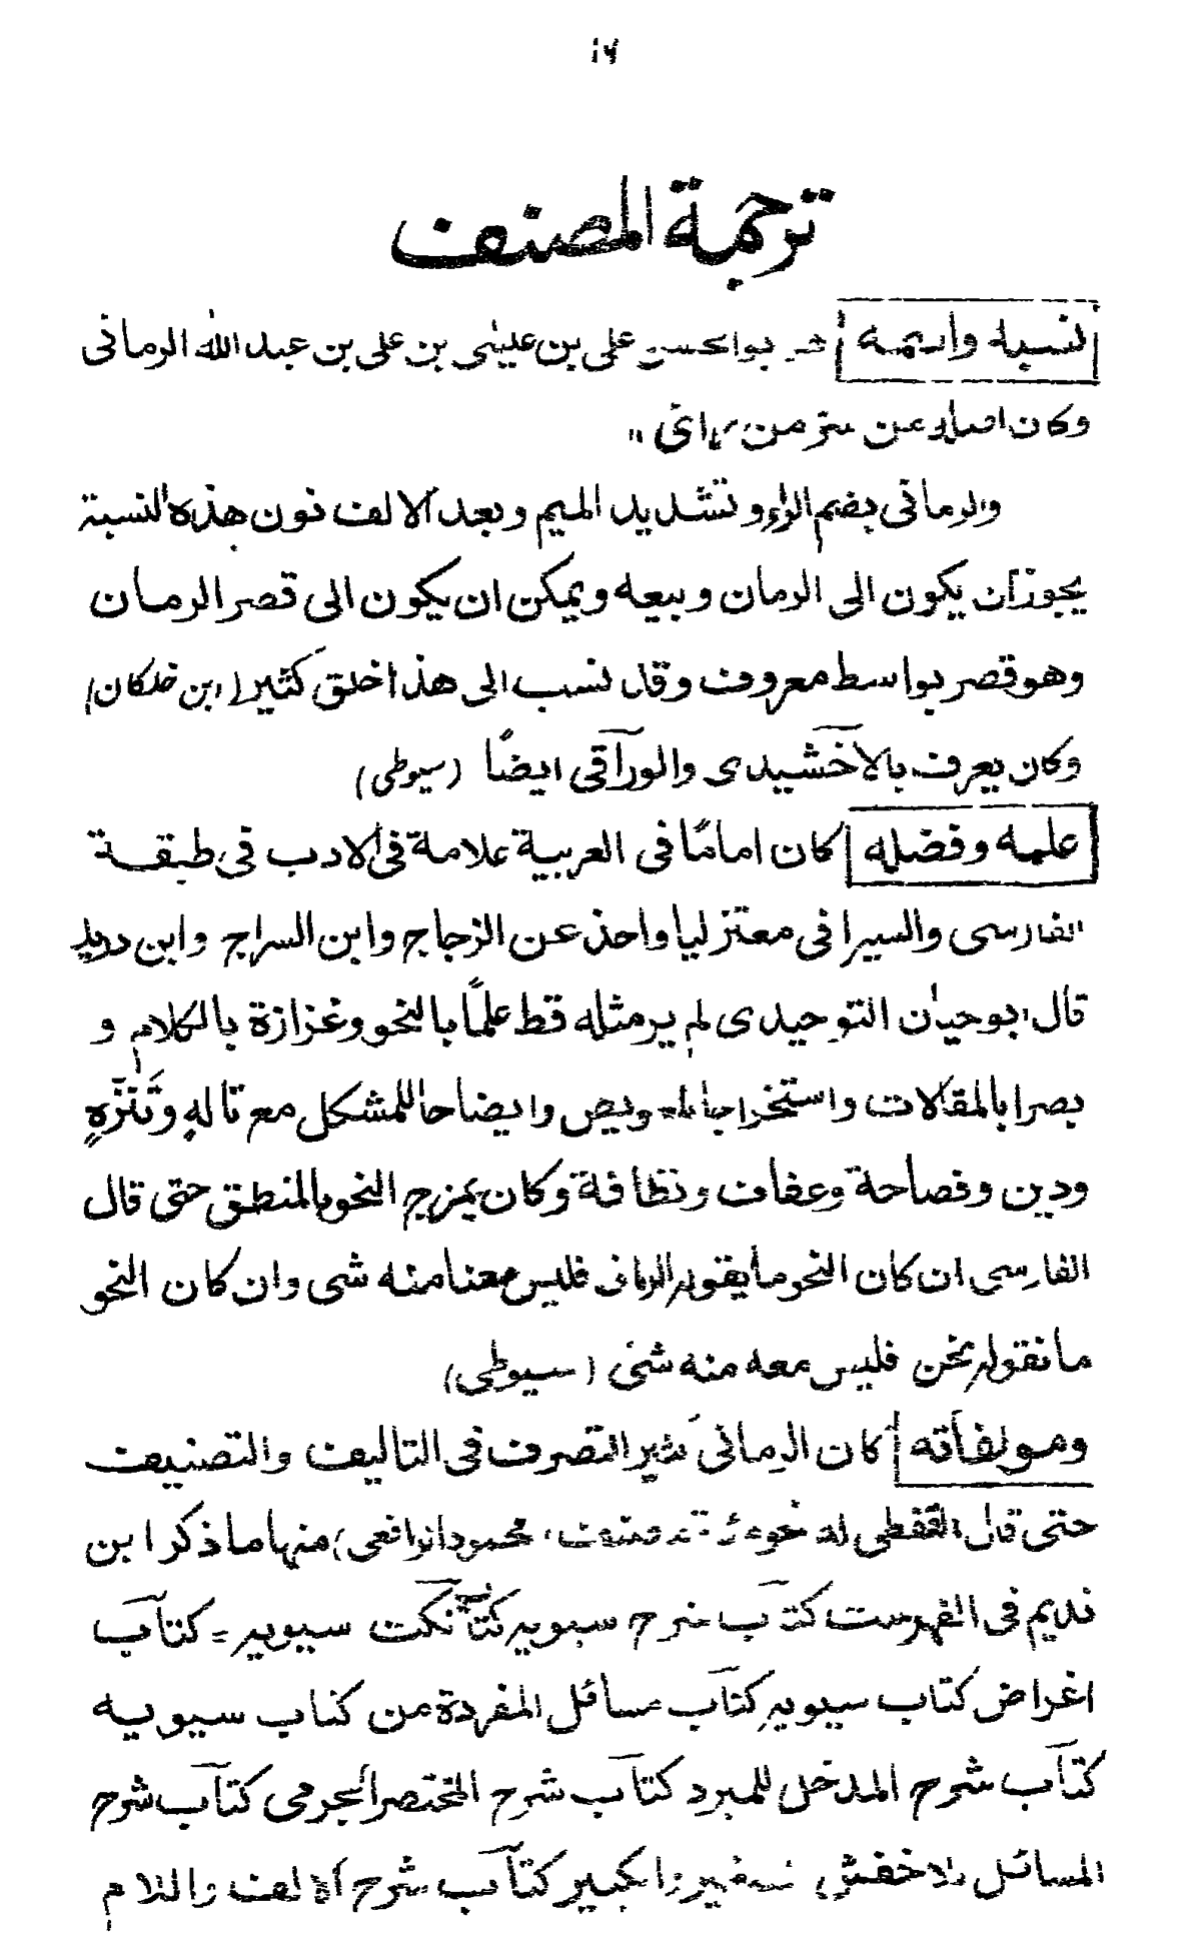 ترجمة المصنف
نسبه واسمه هو ابو الحسن على بن عيسٰى بن على بن عبد الله الرمانى
وكان اصله من سر من رأى "
والرمانى بضم الراء وتشديد الميم وبعد الالف نون هذه النسبة
يجوز ان يكون الى الرمان وبيعه ويمكن ان يكون الى قصر الرمان
وهو قصر بواسط معروف وقد نسب الى هذا خلق كثير (ابن خلكان)
وكان يعرف بالاخشيدى والوراقى ايضًا (سيوطى)
علمه وفضله كان امامًا فى العربية علامة فى الادب فى طبقة
الفارسى والسيرافى معتزليا واخذ عن الزجاج وابن السراج وابن دريد
قال ابو حيان التوحيدى لم ير مثله قط علمًا بالنحو وغزازة بالكلام و
بصرا بالمقالات واستخراجا للعويص وايضاحا للمشكل مع تاله وتَنَزُّهٍ
ودين وفصاحة وعفاف ونظافة وكان يمزج النحو بالمنطق حتى قال
الفارسى ان كان النحو ما يقوله الرمانى فليس معنا منه شى وان كان النحو
ما نقوله نحن فليس معه منه شئ (سيوطى)
ومولفاته كان الرمانى كثير التصرف فى التاليف والتصنيف
حتى قال القفطى له نحو مصنف، محمود الرافعى) منها ما ذكر ابن
نديم فى الفهرست كتاب شرح سيبويه كتاب نكت سيبويه = كتاب
اغراض كتاب سيبويه كتاب مسائل المفردة من كتاب سيبويه
كتاب شرح المدخل للمبرد كتاب شرح المختصر الجرمى كتاب شرح
المسائل للاخفش الصغير والكبير كتاب شرح الالف واللام